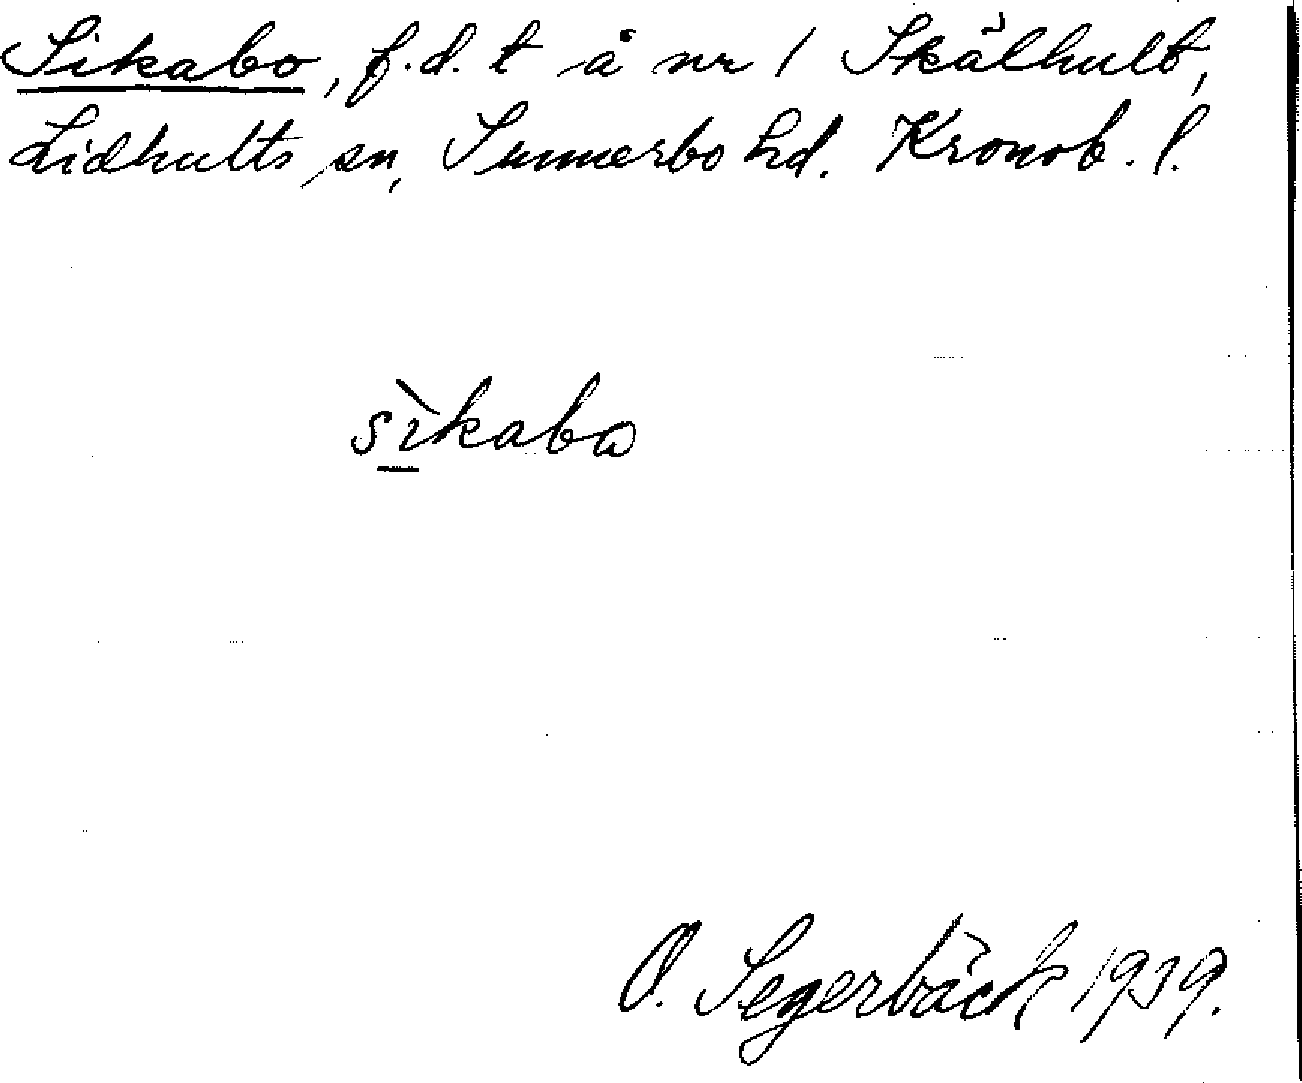 Sikabo, f.d. t å nr 1 Skälhult,
Lidhults sn, Sunnerbo hd. Kronob. l.
sìkabo
O. Segerbäck 1939.